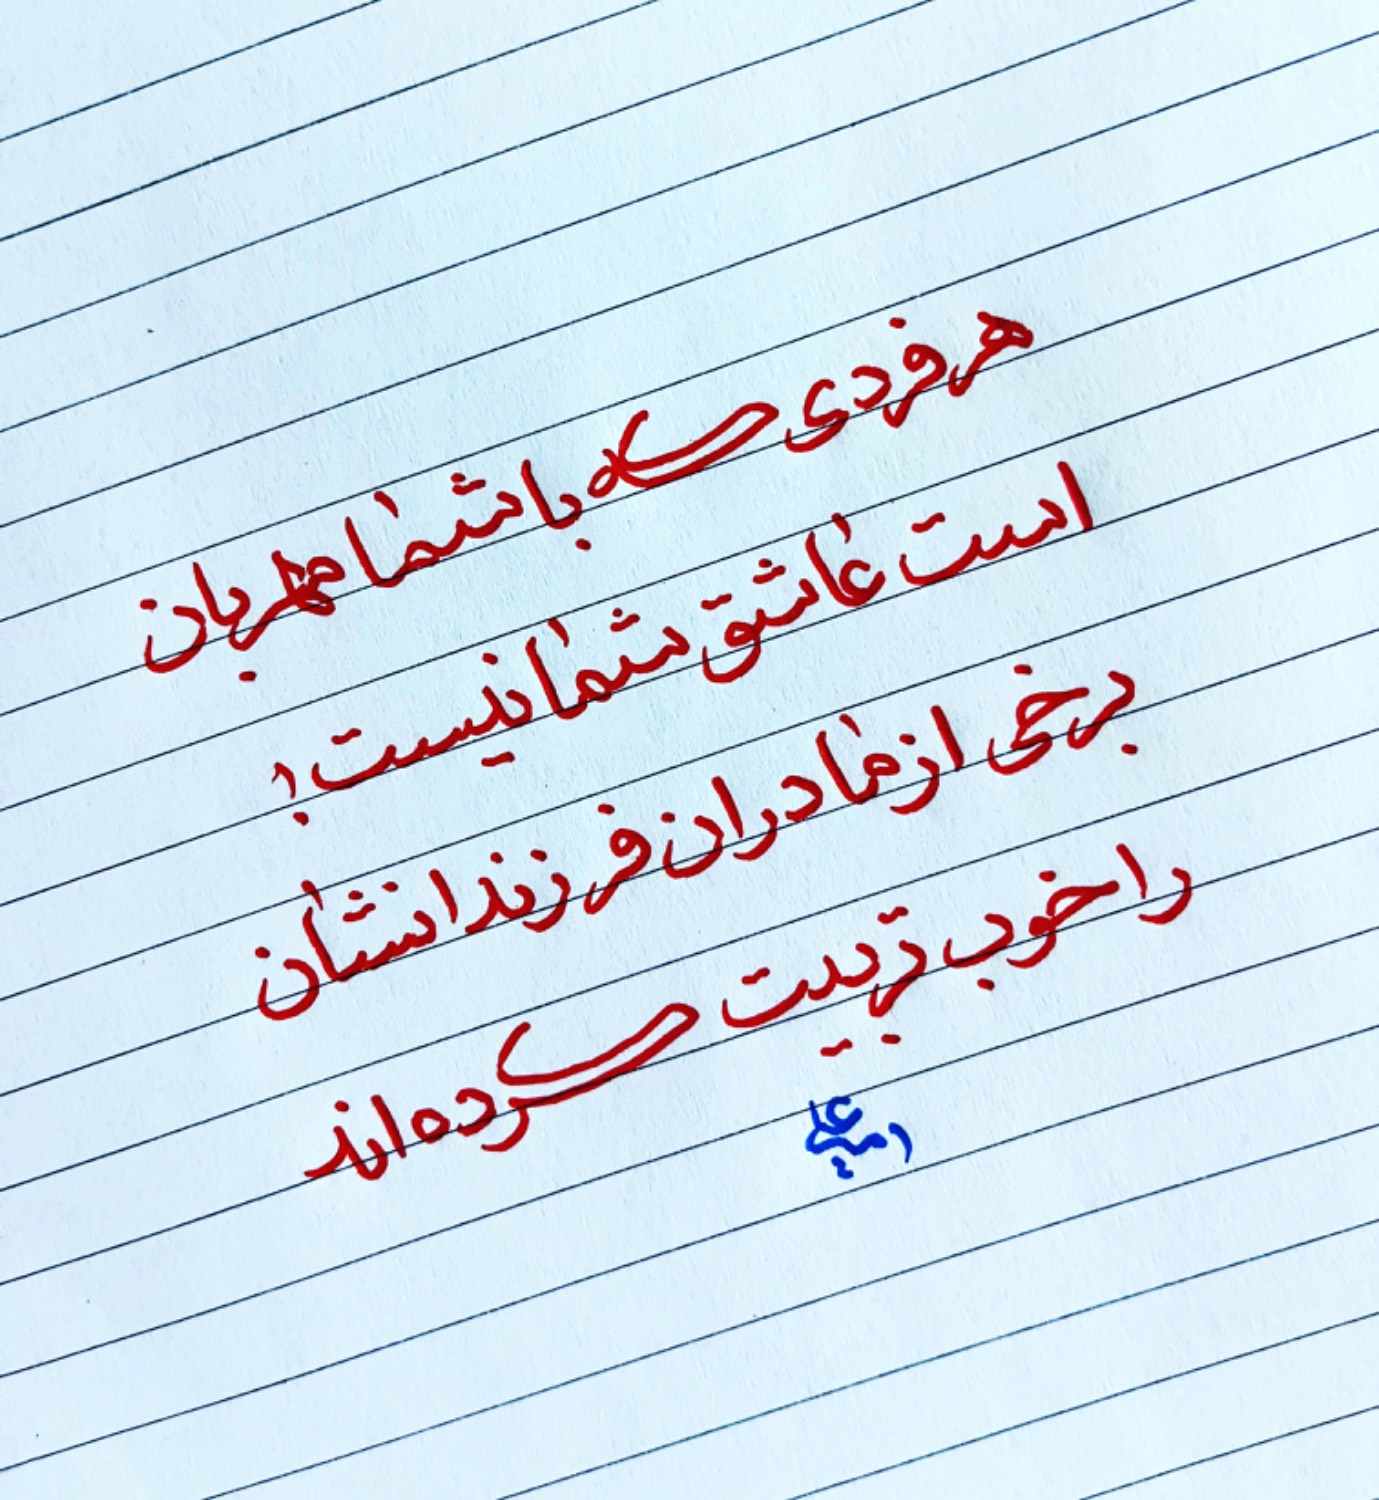 هر فردی که با شما مهربان
است عاشق شما نیست؛
برخی از مادران فرزندانشان
را خوب تربیت کرده‌اند
امیرعلی